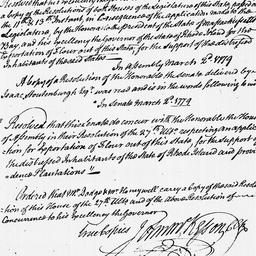 a Copy of the Resolutions of both Houses of the Legislature of this State passed
the 1st & 13th Instant, in Consequence of the application made to the
Legislature, by the Honorable the Assembly of the State of Massachusetts
Bay, and his Excellency the Governor of the State of Rhode Island for the
Exportation of Flour out of this State, for the Support of the distressed
Inhabitants of the said States
In Assembly March 2d 1779
A Copy of a Resolution of the Honorable the Senate delivered by
Isaac Stoutenburgh Esqr was read and is in the words following to wit
"In Senate March 2d 1779
Resolved that this Senate do concur with the Honorable the House
of Assembly in their Resolution of the 27th Ulto respecting an applica
tion for Exportation of Flour out of this State, for the support of
the distressed Inhabitants of the State of Rhode Island and provi
dence Plantations"
Ordered that Mr Dodge & Mr Honeywell carry a Copy of the said Resolu
tion of this House of the 27th Ulto and of the above Resolution of
Concurrence to his Excellency the Governor
true Copies